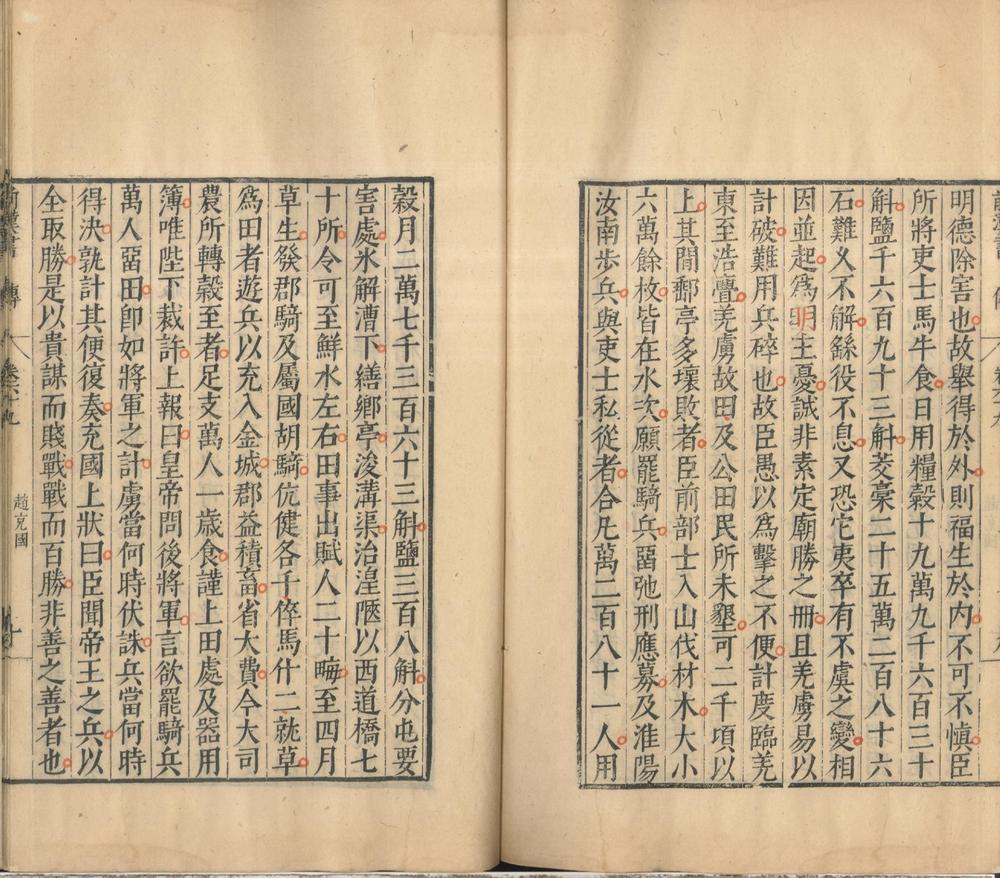 明德除害也故舉得於外則福生於内不可不慎臣
所將吏士馬牛食日用糧穀十九萬九千六百三十
斛鹽千六百九十三斛茭稾二十五萬二百八十六
石難乆不解繇役不息又恐它夷卒有不虞之變相
因並起爲明主憂誠非素定廟勝之冊且羌虜易以
計破難用兵碎也故臣愚以爲擊之不便計度臨羌
東至浩亹羌虜故田及公田民所未墾可二千項以
上其間郵亭多壞敗者臣前部士入山伐材木大小
六萬餘枚皆在水次願罷騎兵畱弛刑應募及淮陽
汝南步兵與吏士私從者合凡萬二百八十一人用
穀月二萬七千三百六十三斛鹽三百八斛分屯要
害處氷解漕下繕鄉亭浚溝渠治湟陿以西道橋七
十所令可至鮮水左右田事出賦人二十畮至四月
草生發郡騎及屬國胡騎伉健各千倅馬什二就草
爲田者遊兵以充入金城郡益積畜省大費今大司
農所轉穀至者足支萬人一歲食謹上田處及器用
簿唯陛下裁許上報曰皇帝問後將軍言欲罷騎兵
萬人畱田卽如將軍之計虜當何時伏誅兵當何時
得決孰計其便復奏充國上狀曰臣聞帝王之兵以
全取勝是以貴謀而賤戰戰而百勝非善之善者也
前漢書 傳 卷六十九
趙充國